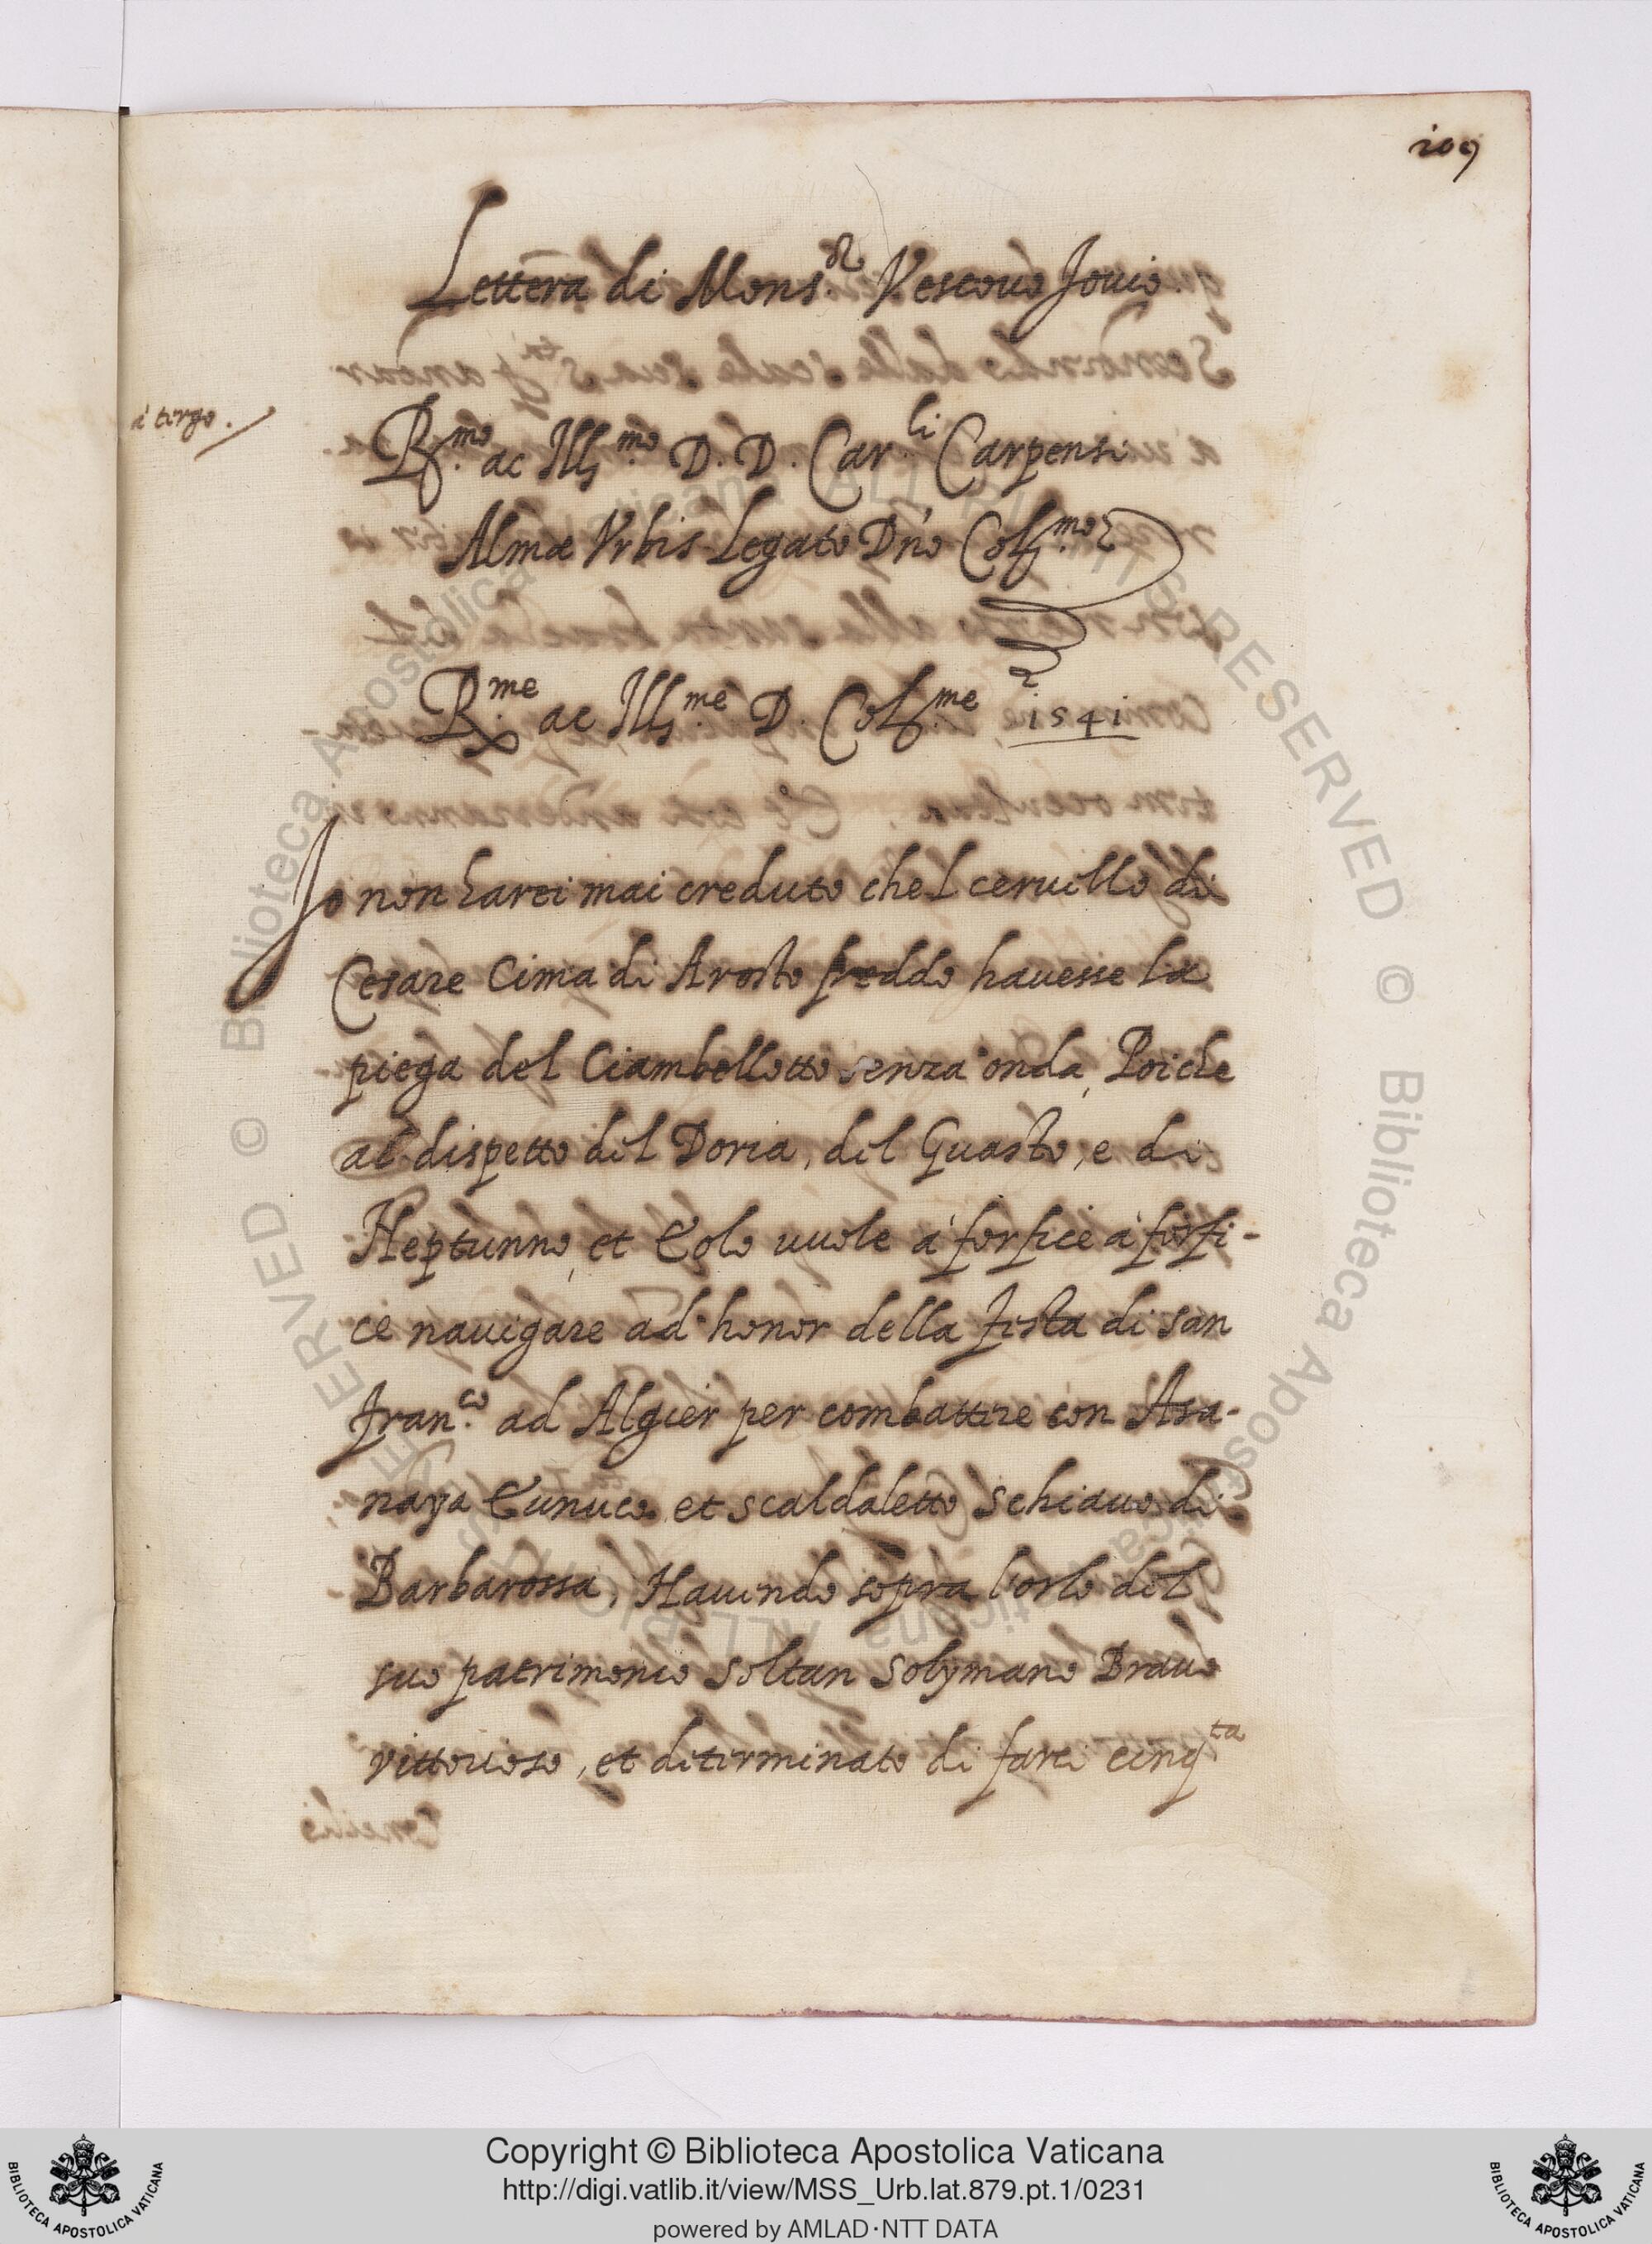 109
Lettera di Mons.or Vescovo Jovio.
à tergo.
R.mo ac Ill.mo D. D. Car.li Carpensi
Almæ Vrbis Legato Dño Col.mo
R.me ac Ill.me D. Col.me 1541
Jo non harei mai creduto chel cervello di
Cesare Cima di Arosto freddo havesse la
piega del Ciambellotto senza onda, Poiche
al dispetto del Doria, del Guasto, e di
Neptunno, et Eolo vuole à forfice à forfi-
ce navigare ad honor della festa di san
fran.co ad Algier per combattere con Asa-
naga Eunuco et scaldaletto schiavo di
Barbarossa, Havendo sopra l'orlo del
suo patrimonio Soltan Solymano Bravo
vittorioso, et determinato di farci cinq.ta
Copyright © Biblioteca Apostolica Vaticana
http://digi.vatlib.it/view/MSS_Urb.lat.879.pt.1/0231
powered by AMLAD·NTT DATA
BIBLIOTECA APOSTOLICA VATICANA
BIBLIOTECA APOSTOLICA VATICANA